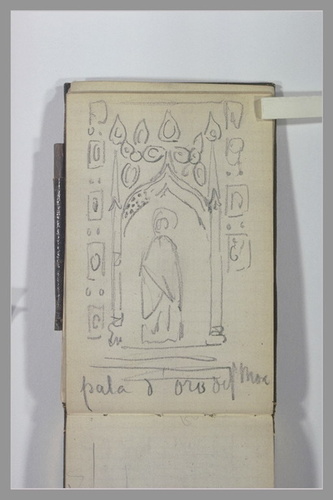 pala d'oro di S Marc